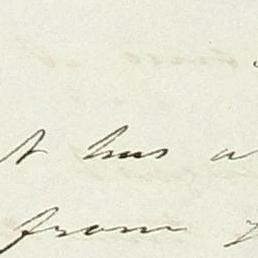 has a
from